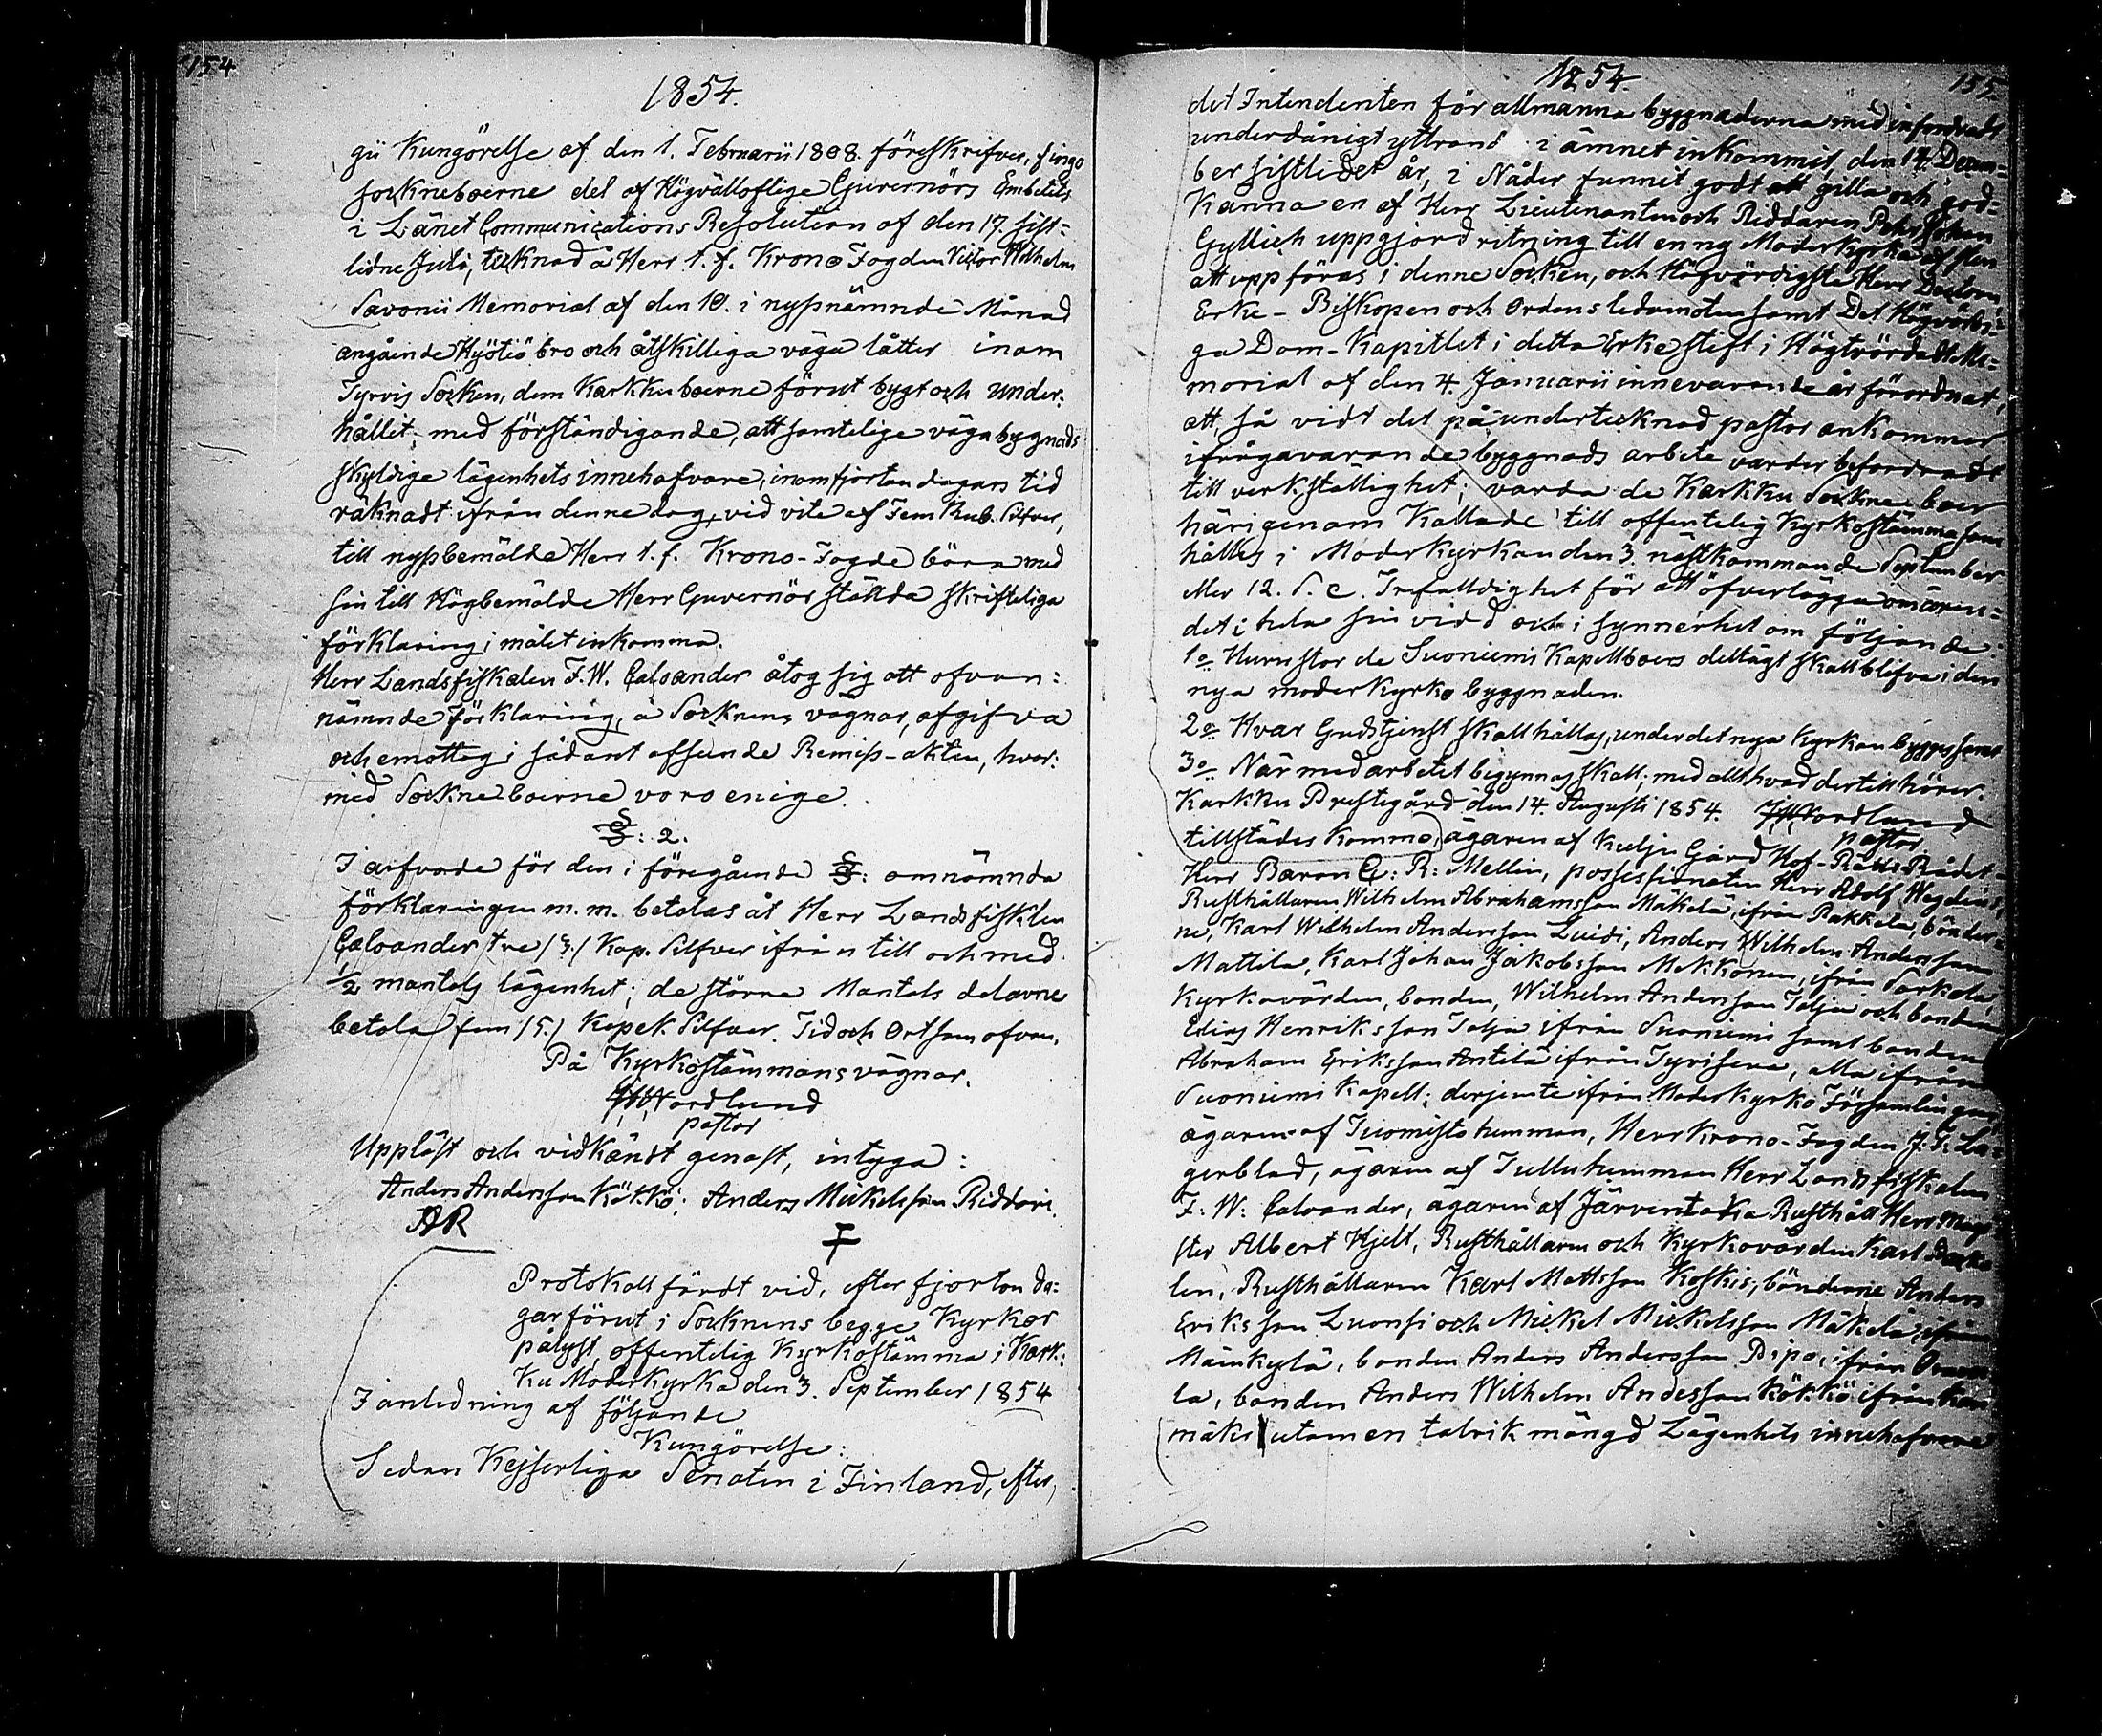 154.
1854.
gii Kungörelse af den 1. Februarii 1808. föreskrifves, fingo
sockneboerne del af Högvälloflige Guvernörs Embetets
i Länet Communications Resolution af den 17. sist-
lidne Julii, tecknad å Herr t. f. Krono Fogden Victor Wilhelm
Savonii Memorial af den 10. i nyssnämnde Månad
angående Kyötiö bro och åtskilliga väga låtter inom
Tyrvis Socken, dem Karkku boerne förut bygt och under-
hållit; med förständigande, att samtelige vägabygnads
skyldige lägenhets innehafvare, inom fjorton dagars tid
räknadt ifrån denne dag, vid vite af Fem Rub. Silfver,
till nyssbemälde Herr t. f. Krono-Fogde böra med
sin till Högbemälde Herr Guvernör ställda skrifteliga
förklaring i målet inkomma.
Herr Landsfiskalen F. W. Caloander åtog sig att ofvan:
nämnde förklaring, å Socknens vägnar, afgifva
och emottog i sådant afseende Remiss-akten, hvar:
med Sockneboerne voro enige.
§: 2.
I arfvode för den i föregående §: omnämnda
förklaringen m. m. betalas åt Herr Landsfisklen
Caloander tre /3./ Kop. Silfver ifrån till och med
1/2 mantels lägenhet; de större Mantals delarne
betala fem /5./ Kopek Silfver. Tid och Ort som ofvan.
På Kyrkostämmans vägnar.
Nordlund
pastor
Uppläst och vidkändt genast, intyga:
Anders Andersson Kökkö; Anders Mickelsson Riddari.
AR
Protokoll fördt vid, efter fjorton da:
gar förut i Socknens begge Kyrkor
pålyst, offentelig Kyrkostämma i Kark:
ku Moderkyrka den 3. September 1854
I anledning af följande
Kungörelse:
Sedan Kejserliga Senaten i Finland, efter,
155.
1854.
det Intendenten för allmänna byggnaderna med infordradt
underdånigt yttrand i ämnet inkommit, den 14. Decem-
ber sistlidet år, i Nåder funnit godt att gilla och god-
känna en af Herr Lieutenanten och Riddaren Pehr Johan
Gyllich uppgjord ritning till en ny Moderkyrka af sten
att uppföras i denne Socken, och Högvördigste Herr Doctorn
Erke-Biskopen och Ordens ledamoten samt Det Högvördi-
ga Dom-Kapitlet i detta Erke stift i Högtvördadt Me-
morial af den 4. Januarii innevarande år förordnat,
att, så vidt det på undertecknad pastor ankommer
ifrågavarande byggnads arbete varder befordradt
till verkställighet; varda de Karkku Sockne boer
härigenom kallade till offentelig Kyrkostämma som
hålles i Moderkyrkan den 3. nästkommande September
eller 12. S. e. Trefalldighet för att öfverlägga om ären-
det i hela sin vidd och i synnerhet om följande:
1o Huru stor de Suoniemi Kapellboers deltägt skall blifva i den
nya moderkyrko byggnaden.
2o Hvar Gudstjenst skall hållas, under det nya Kyrkan bygges samt
3o När med arbetet begynnas skall; med allt hvad dertill hörer.
Karkku Prestegård den 14. Augusti 1854. Nordlund
pastor
tillstädes kommo, ägaren af Kulju Gård Hof-Rätts Rådet-
Herr Baron C: R: Mellin, possessionaten Herr Adolf Wegelius,
Rusthållaren Wilhelm Abrahamsson Mäkelä, ifrån Pakkala, bönder-
ne, Karl Wilhelm Andersson Luidi, Anders Wilhelm Andersson
Mattila, Karl Johan Jakobsson Mekkonen, ifrån Sarkola,
Kyrkovärden, bonden, Wilhelm Andersson Tolja och bonden
Elias Henriksson Tolja ifrån Suoniemi samt bonden
Abraham Eriksson Antila ifrån Tyrisevä, alla ifrån
Suoniemi Kapell; derjemte ifrån Moderkyrko Församlingen,
ägaren af Tuomisto hemman, Herr Krono-Fogden J. F. La-
gerblad, ägaren af Tullu hemman Herr Landsfiskalen
F: W: Caloander, ägaren af Järventaka Rusthåll Herr Magi
ster Albert Hjelt, Rusthållaren och Kyrkovärden Karl
len, Rusthållaren Karl Mattsson Koskis, bönderne Anders
Eriksson Luonsi och Mickel Mickelsson Mäkelä, ifrån
Mäinkylä, bonden Anders Andersson Pipo, ifrån
la, bonden Anders Wilhelm Andesson Kökkö ifrån
mäki utom en talrik mängd Lägenhets innehafvare